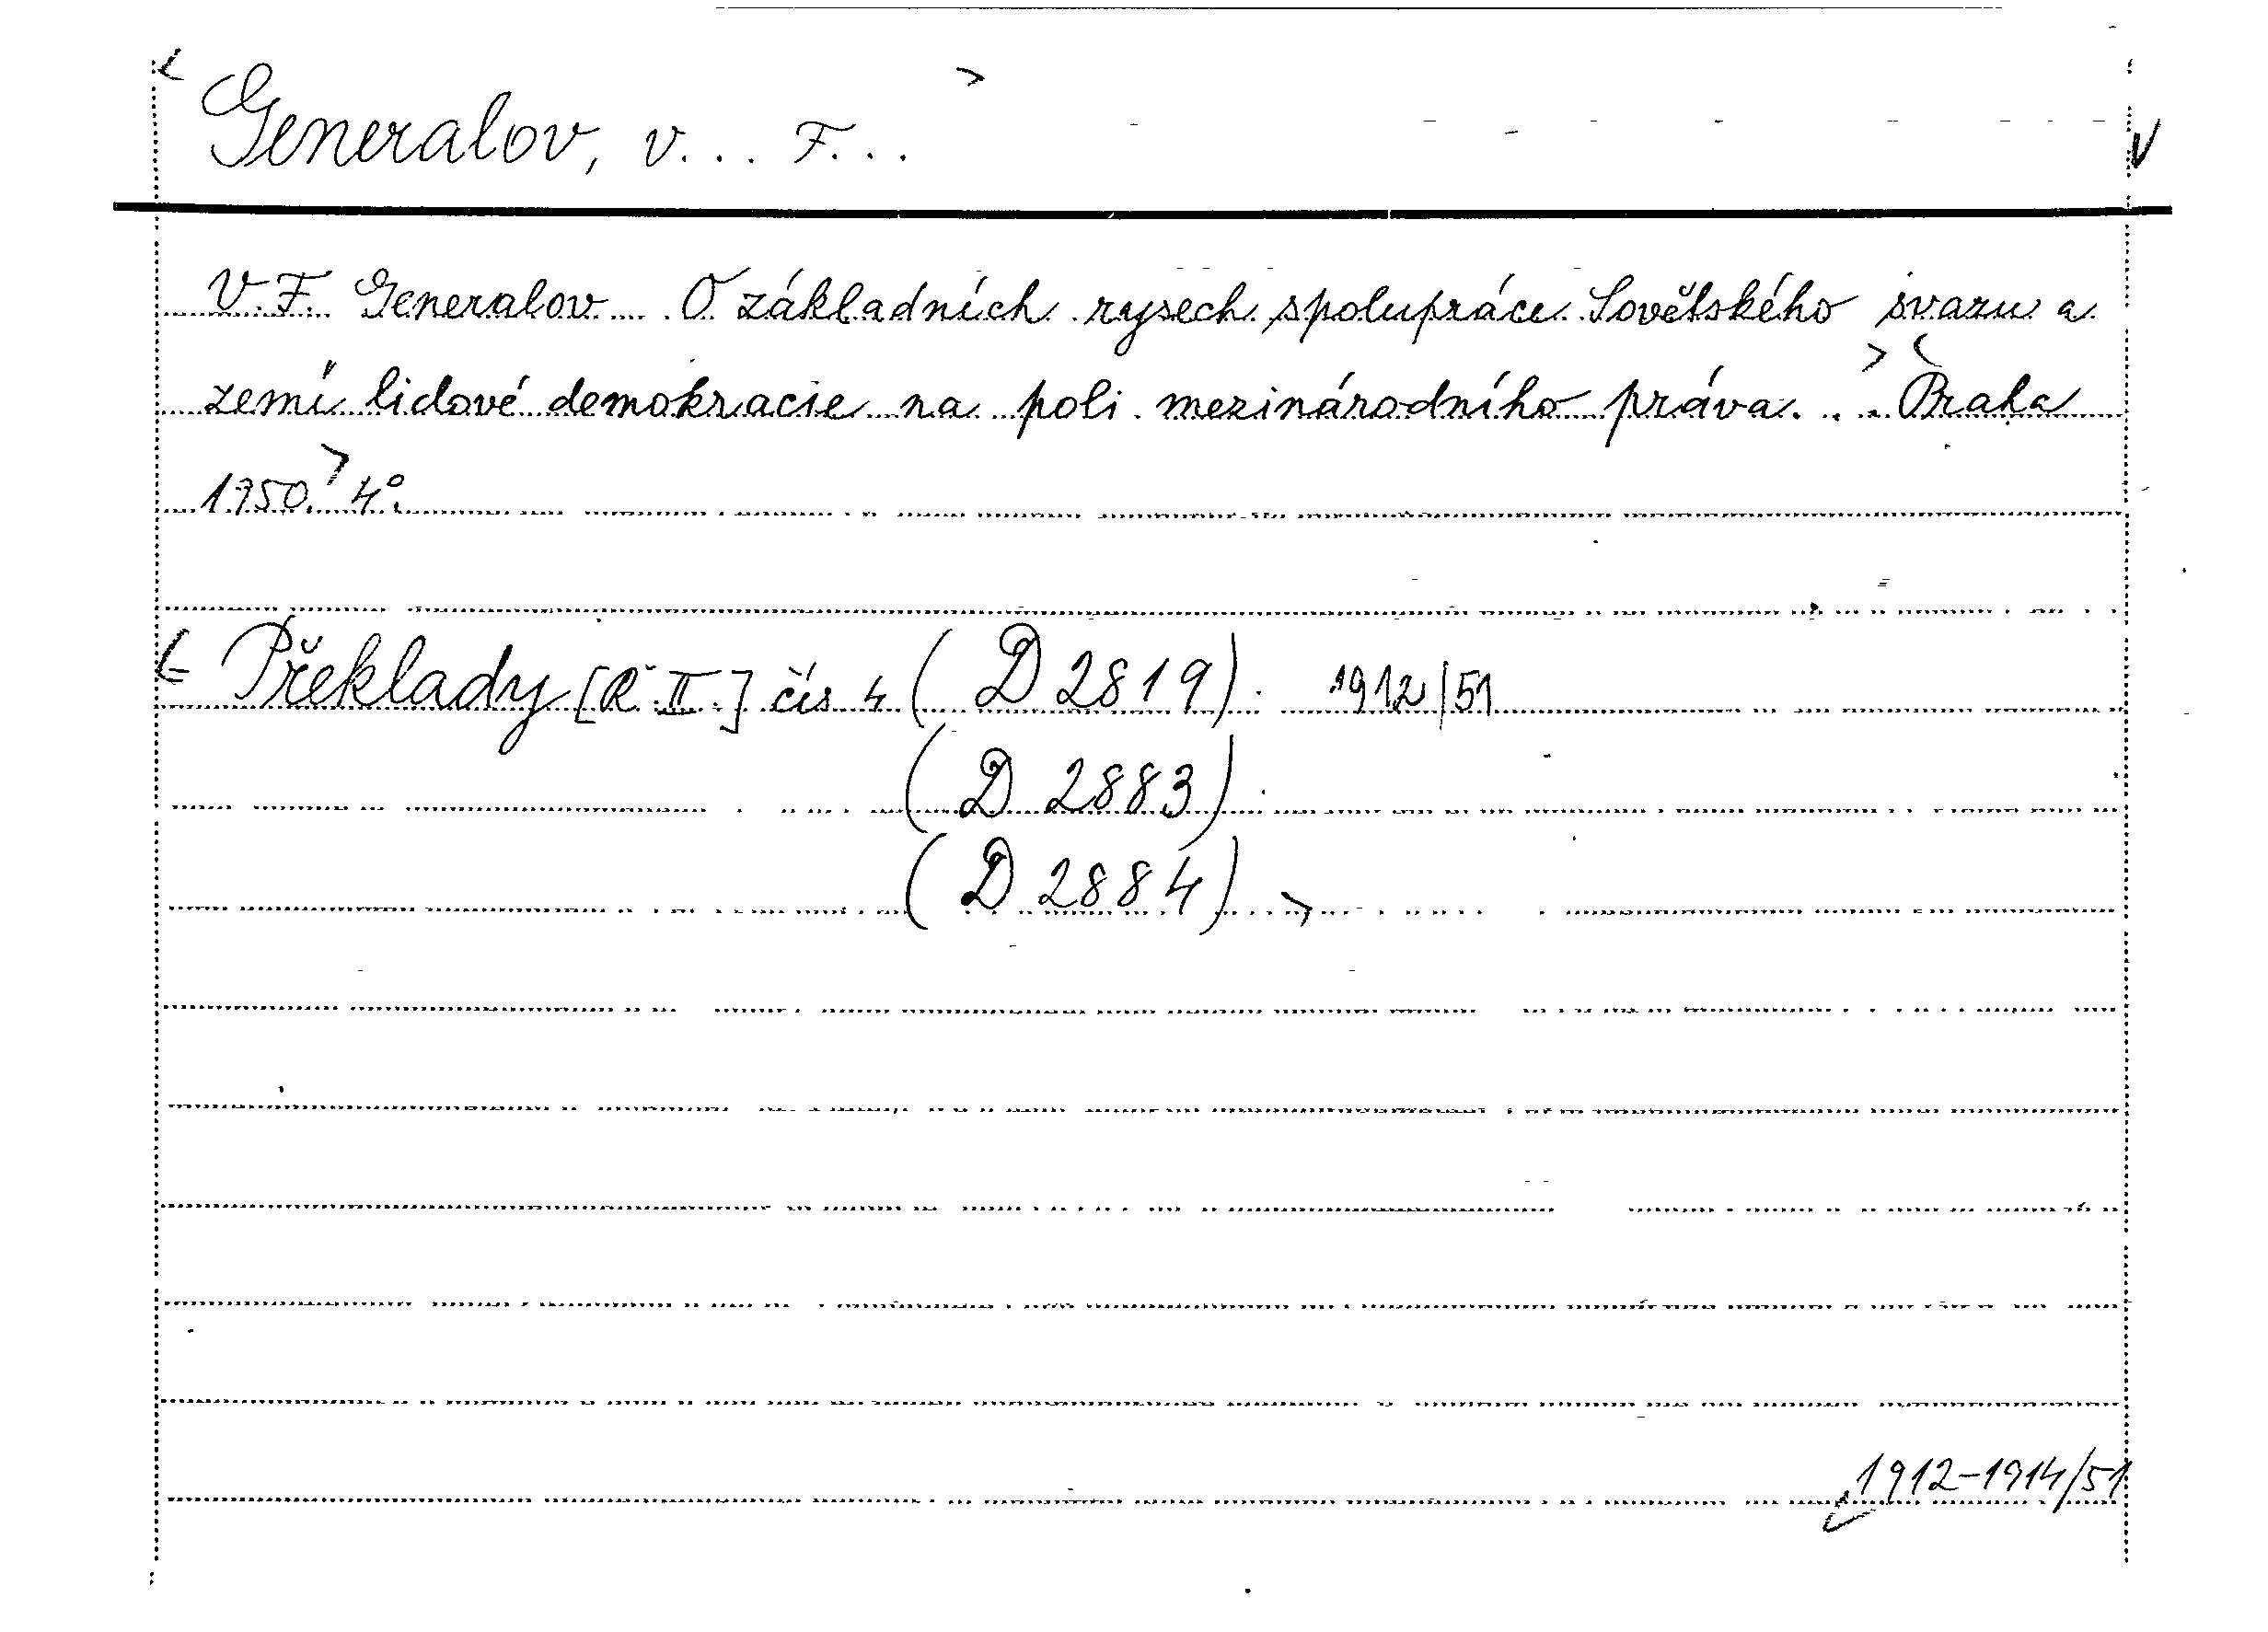 Generalov, V... F...
V. F. Generalov O základních rysech spolupráce Sovětského svazu a
zemí lidové demokracie na poli mezinárodního práva... Praha
1950. 4°.
Překlady [Ř. II.] čís 4 (D 2819). 1912/51
(D 2883)
(D 2884)
1912-1914/51